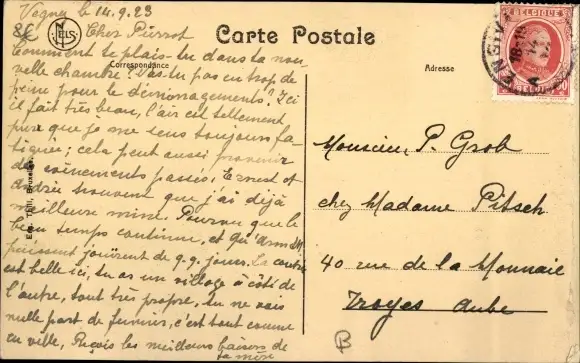 Vegna le 14.9.23
Cher Pierrot
Comment te plais-tu dans ta nou
velle chambre? As-tu pas eu trop de
peine pour le déménagements? Ici
il fait très beau, l'air est tellement
pure que je me sens toujours fa-
tiguée; cela peut aussi provenir
des évènements passés. Ernest et
trouvent que j'ai déjà
meilleure mine. Pourvu que le
beau temps continue, et qu'
puissent jouirent de q.q. jours. La contrée
est belle ici, tu as un village à côté de
l'autre, tout très propre, tu ne vois
nulle part de fumier, c'est tout comme
en ville. Reçois les meilleurs baisers de
ta mère
NELS
Carte Postale
Correspondance
Adresse
BELGIQUE
BELGIË
ENSIVAL
Monsieur, P. Grob
chez Madame Pitsch
40 rue de la Monnaie
Troyes Aube
B